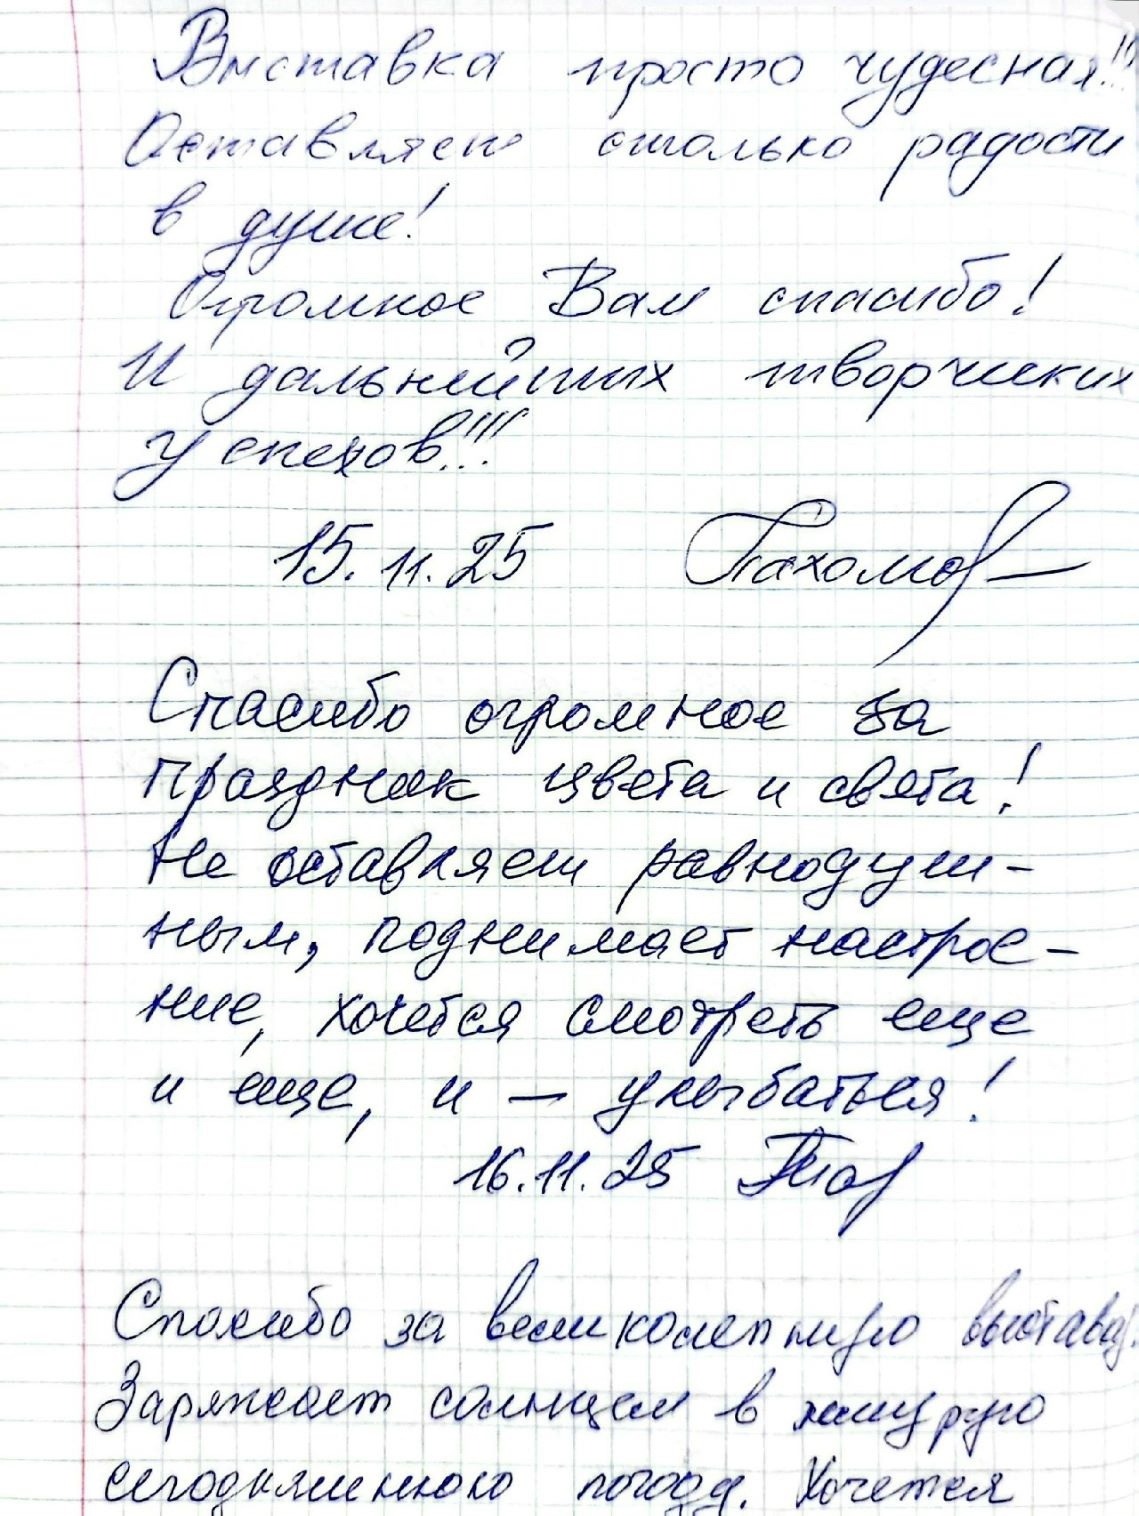 Выставка просто чудесная!!!
Оставляет столько радости
в душе!
Огромное Вам спасибо!
И дальнейших творчиких
успехов!!!
15.11.25 Пахомов
Спасибо огромное за
праздник цвета и света!
Не оставляет равнодуш-
ным, поднимает настрое-
ние, хочется смотреть еще
и еще, и — улыбаться!
16.11.25
Спасибо за великолепную выставку.
Заряжает солнцем в хмурую
сегодняшнюю погоду. Хочется